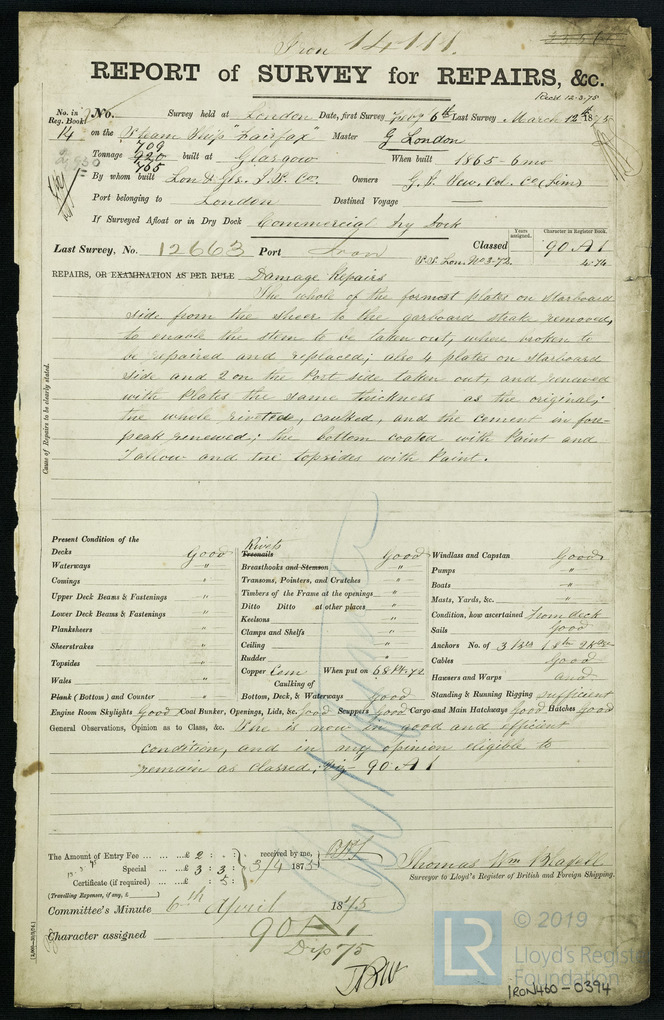 Iron 14111.
REPORT of SURVEY for REPAIRS, &c.
Recd. 12.3.75
No. in Reg. Book. No. Survey held at London Date, first Survey 6th Last Survey March 12th 1875
14 on the "Fairfax" Master G London
709
Tonnage 920 built at Glasgow When built 1865-6mo
765
By whom built Lon & Gls. Co. Owners G. S. Col. Co (Lim)
Port belonging to London Destined Voyage —
If Surveyed Afloat or in Dry Dock Commercial Dry Dock
Years assigned. Character in Register Book.
Last Survey, No. 12663 Port Iron Classed 90 A 1
S.S. Lon. No 3-72. 4-74
REPAIRS, OR EXAMINATION AS PER RULE Damage Repairs
Cause of Repairs to be clearly stated.
The whole of the formost plates on Starboard
side from the sheer to the garboard strake removed,
to enable the stem to be taken out, where broken to
be repaired and replaced; also 4 plates on starboard
side and 2 on the Port side taken out, and renewed
with Plates the same thickness as the original;
the whole riveted, caulked, and the cement in fore-
peak renewed; the bottom coated with Paint and
Tallow and the topsides with Paint.
Present Condition of the
Decks Good
Waterways "
Comings "
Upper Deck Beams & Fastenings "
Lower Deck Beams & Fastenings "
Planksheers "
Sheerstrakes "
Topsides "
Wales "
Plank (Bottom) and Counter "
Rivets
Treenails Good
Breasthooks and Stemson "
Transoms, Pointers, and Crutches "
Timbers of the Frame at the openings "
Ditto Ditto at other places "
Keelsons "
Clamps and Shelfs "
Ceiling "
Rudder "
Copper Com When put on
Caulking of
Bottom, Deck, & Waterways good
Windlass and Capstan Good
Pumps "
Boats "
Masts, Yards, &c. "
Condition, how ascertained From deck
Sails Good
Anchors No. of 3
Cables Good
Hawsers and Warps and
Standing & Running Rigging sufficient
Engine Room Skylights Good Coal Bunker, Openings, Lids, &c. Good Scuppers Good Cargo and Main Hatchways Good Hatches Good
General Observations, Opinion as to Class, &c. She is now in good and efficient
condition, and in my opinion eligible to
remain as classed, viz- 90 A 1
The Amount of Entry Fee ... £ 2 : :
Special ... £ 3 : 3 : received by me, 3/4 1875
Certificate (if required) ... £ : 5 :
(Travelling Expenses, if any, £ )
Thomas Wm
Surveyor to Lloyd's Register of British and Foreign Shipping.
Committee's Minute 6th April 1875
Character assigned 90 A 1
75
© 2019
LR
Lloyd's Register
Foundation
IRON460-0394